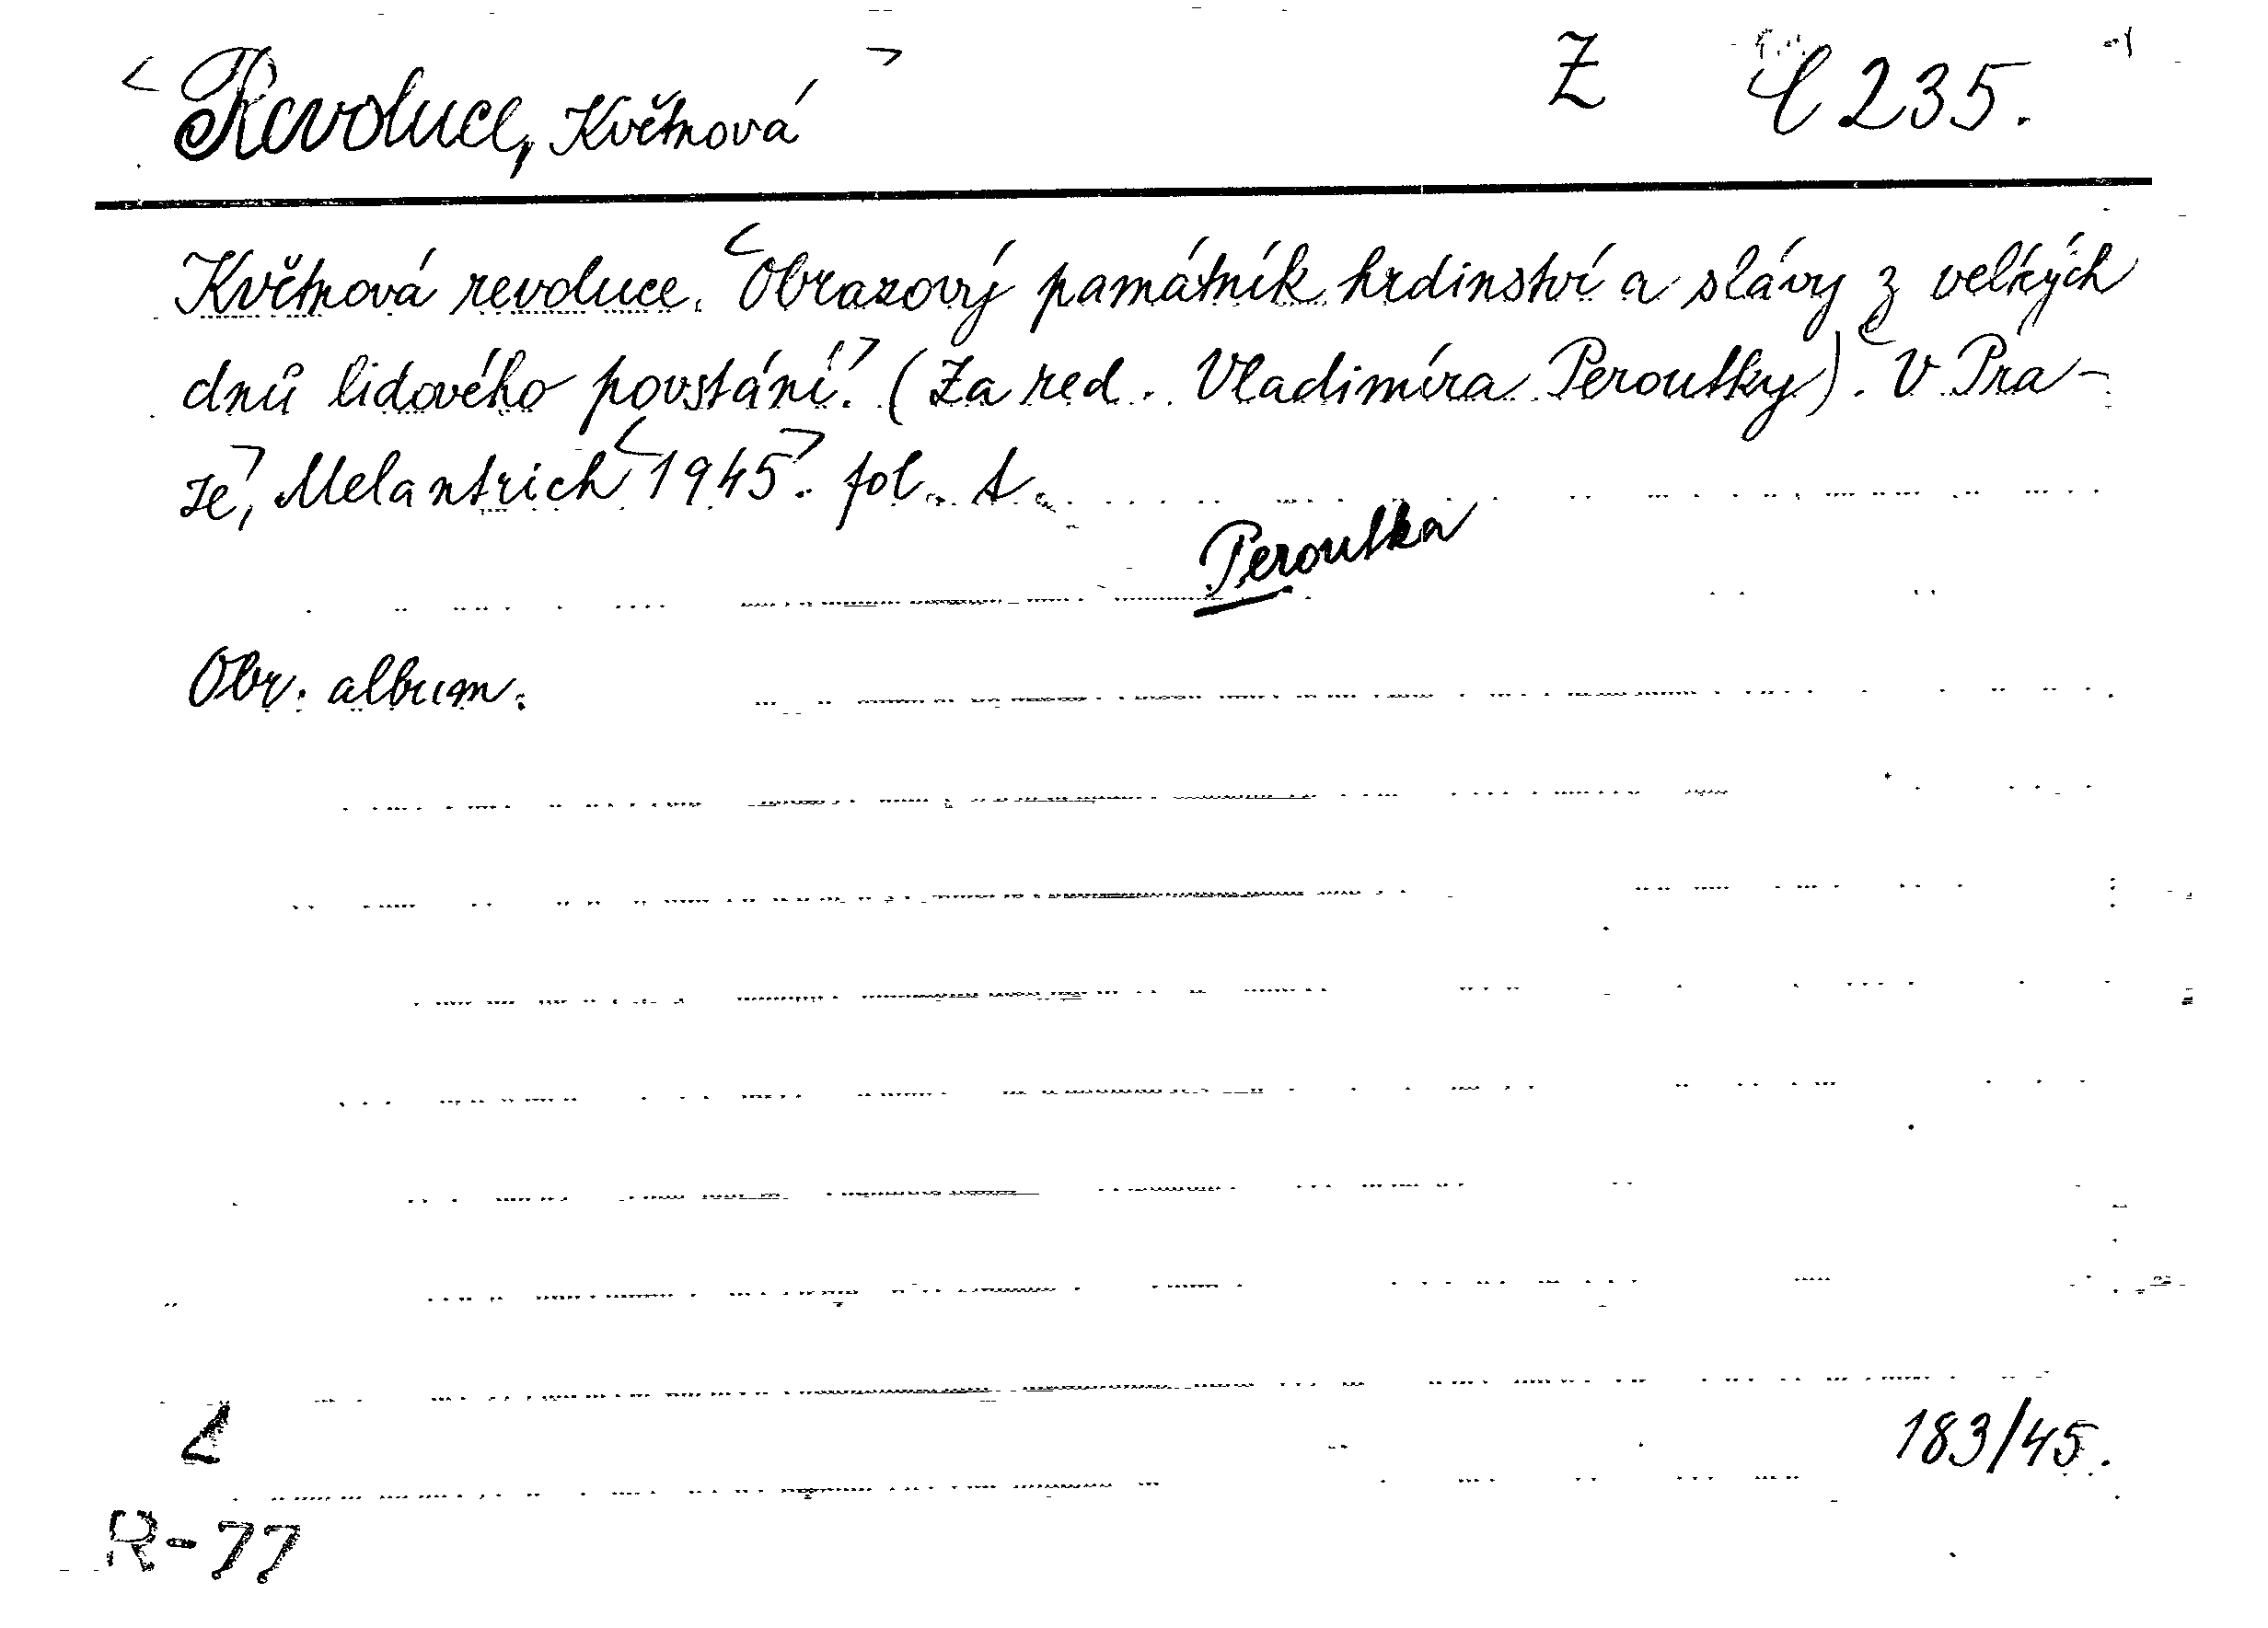 < Revoluce, Květnová > Z C 235.
Květnová revoluce. <Obrazový památník hrdinství a slávy z velkých
dnů lidového povstání.> (Za red. Vladimíra Peroutky). <V Pra-
ze>, Melantrich <1945>. fol. t.
Peroutka
Obr. album.
183/45.
R-77